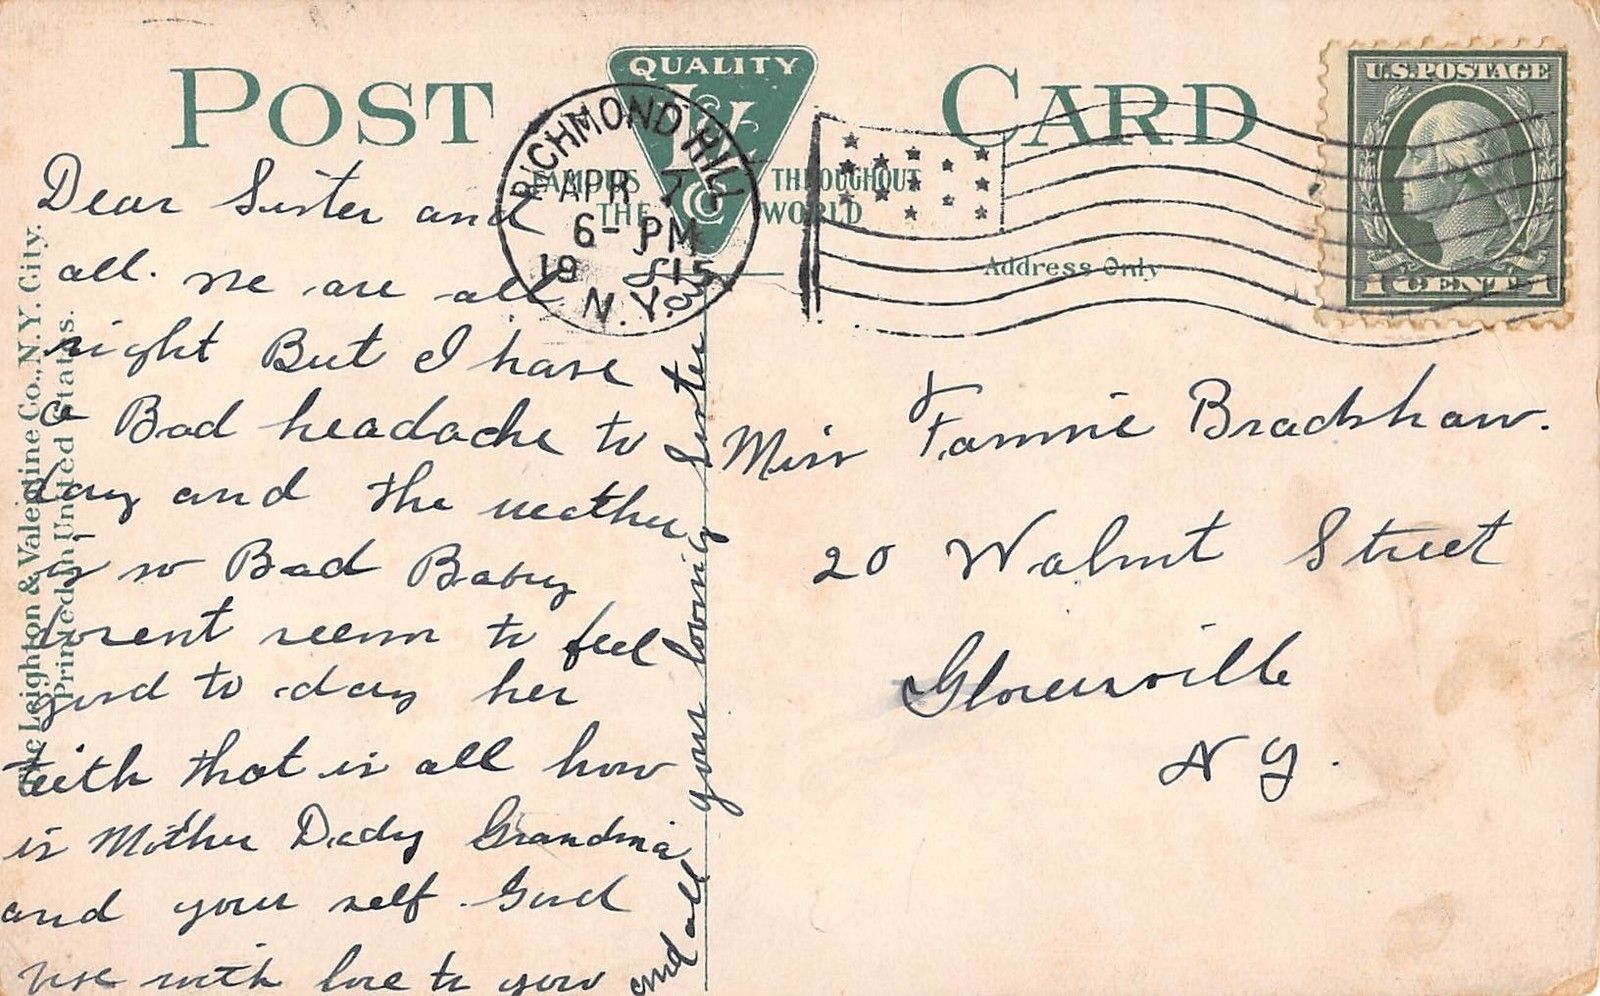 POST CARD
QUALITY
FAMOUS THROUGHOUT
THE WORLD
RICHMOND HILL
APR 7
6- PM
1915
N.Y.
U.S.POSTAGE
1 CENT 1
Address Only
The Leighton & Valentine Co., N.Y. City.
Printed in United States.
Dear Sister and
all. We are all
right But I have
a Bad headache to
day and the weather
is so Bad Baby
dosent seem to feel
good to day her
teeth that is all how
is Mother Dady Grandma
and your self. Good
bye with love to you
and all your loving Sister
Miss Fannie Bradshaw.
20 Walnut Street
Gloversville
N Y.